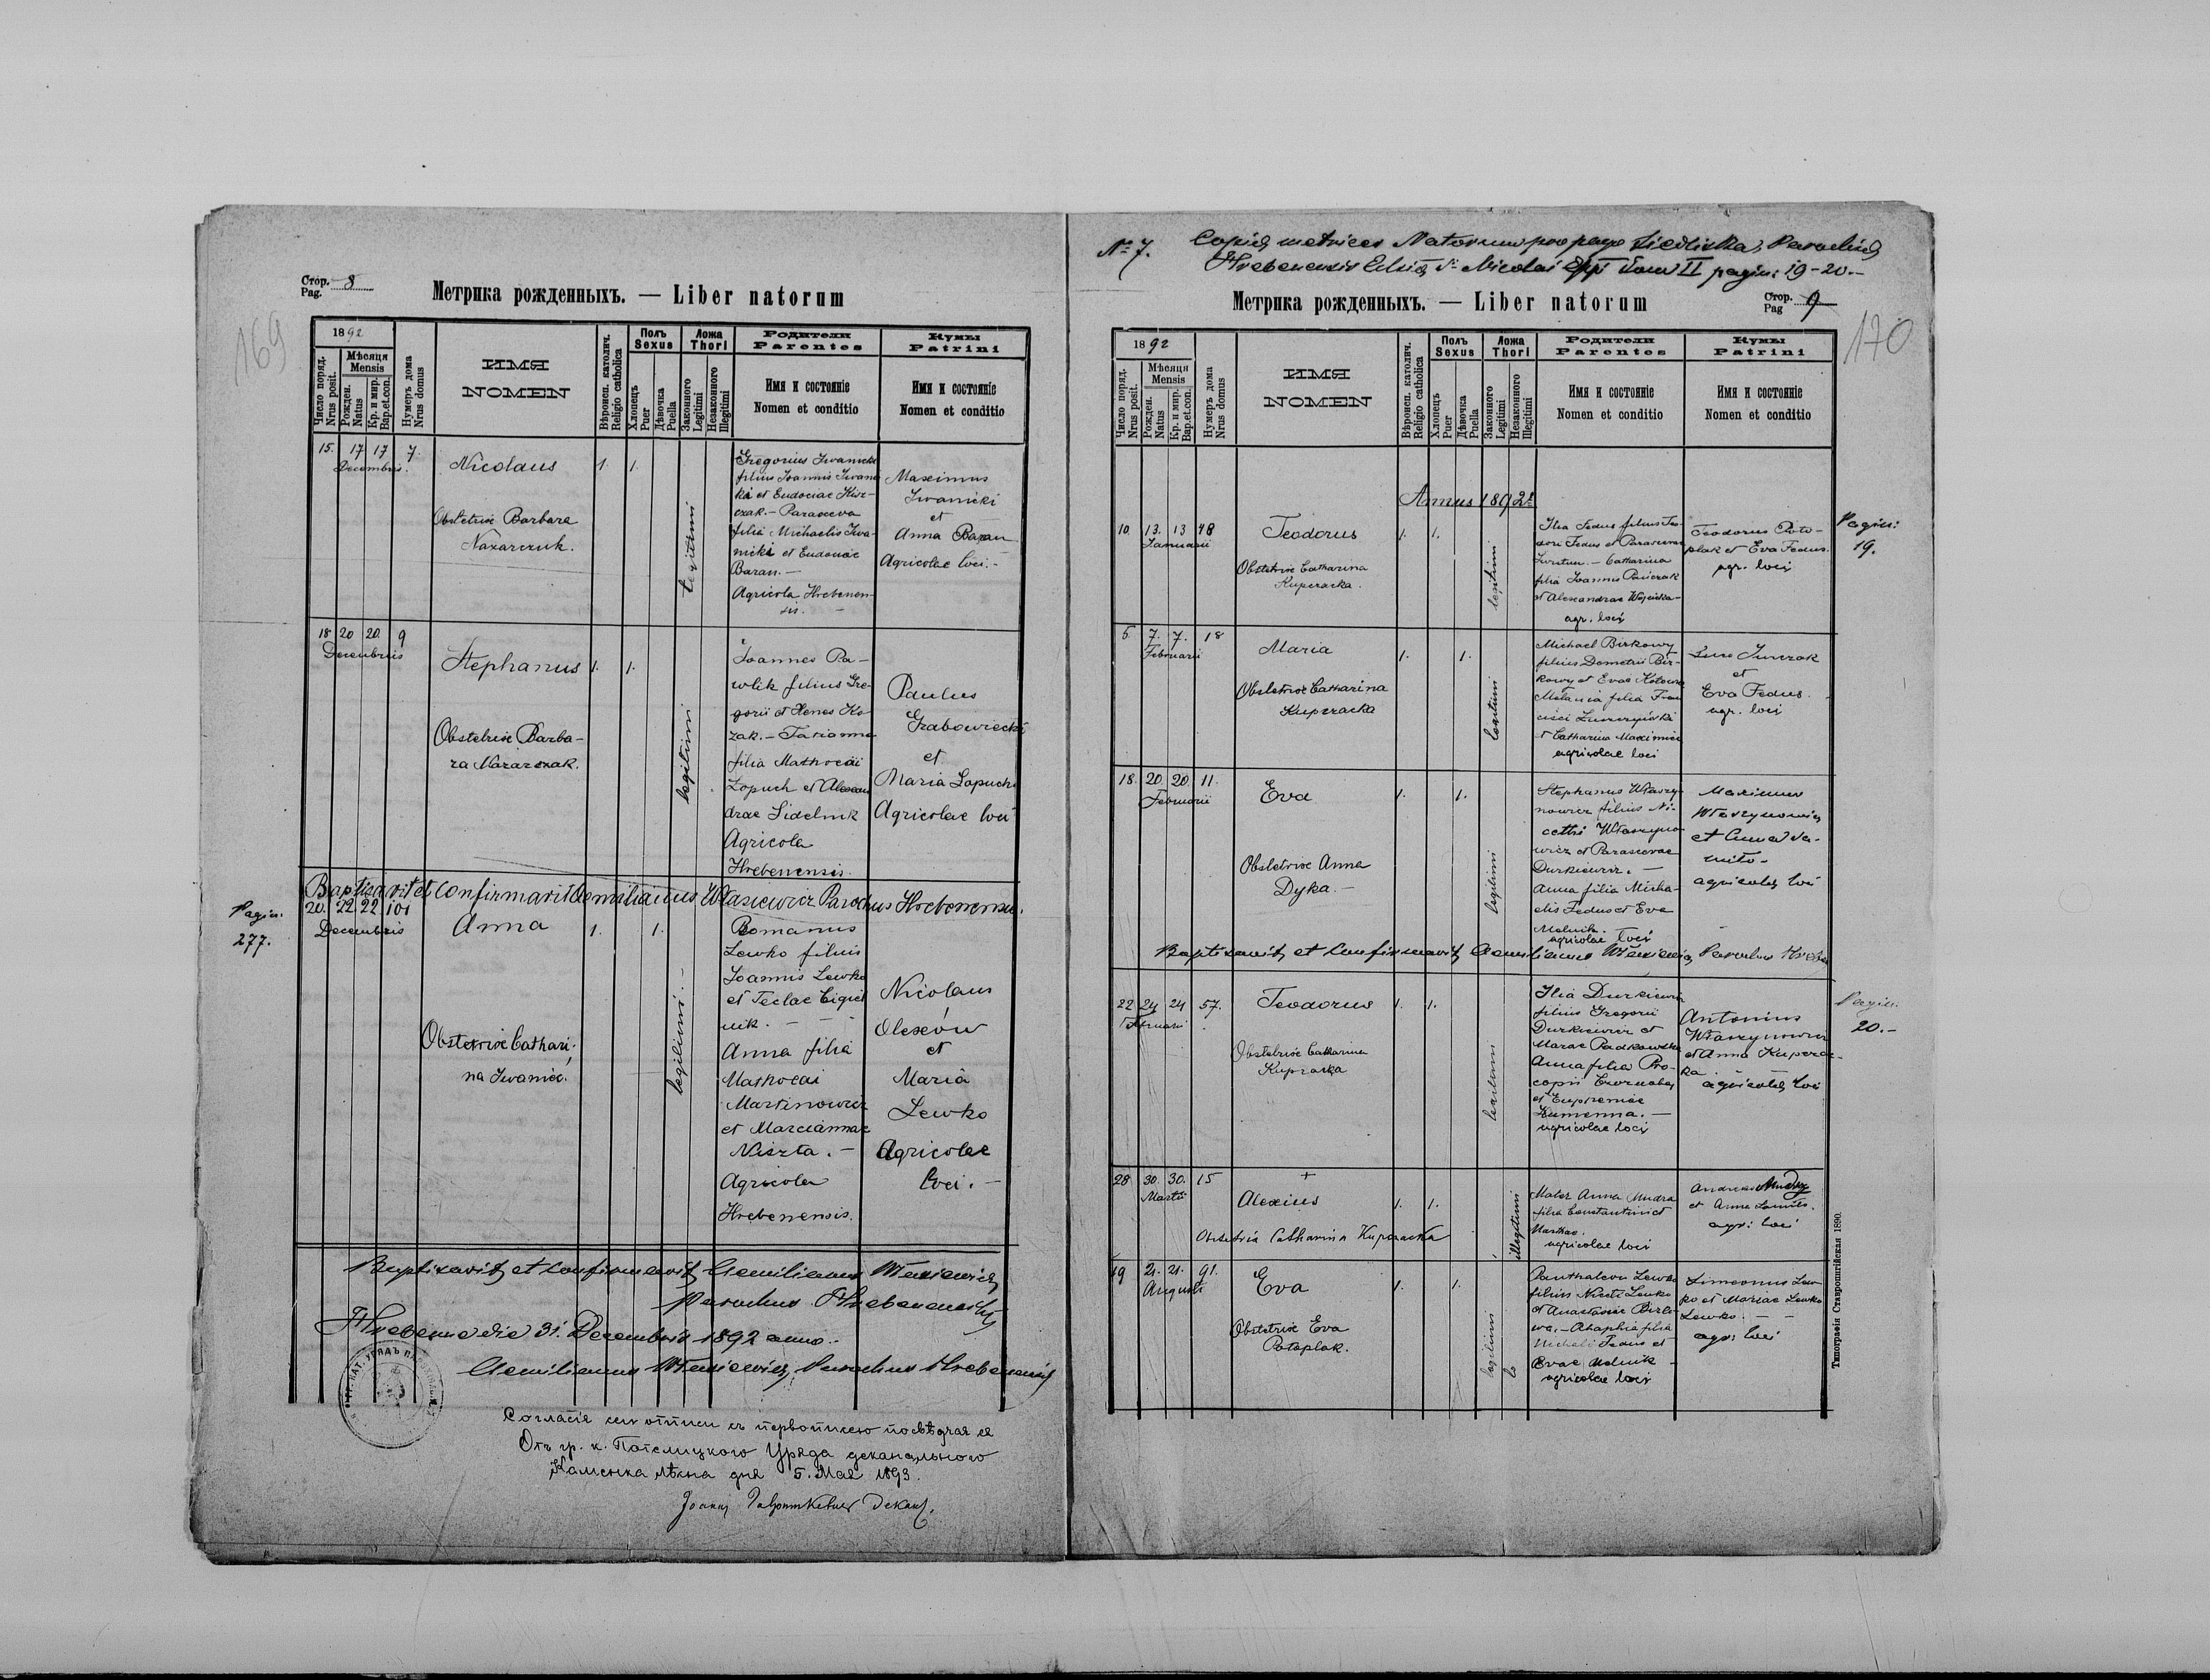 169
Стор. 8
Pag.
Метрика рожденныхъ. — Liber natorum
1892
Число поряд. Nrus posit.
Мѣсяця Mensis
Рожден. Natus
Кр. и мир. Bap.et.con.
Нумеръ дома Nrus domus
ИМЯ
NOMEN
Вѣроисп. католич. Religio catholica
Полъ Sexus
Хлопецъ Puer
Дѣвочка Puella
Ложа Thori
Законного Legitimi
Незаконного Illegitimi
Родители
Parentes
Имя и состоянiе
Nomen et conditio
Кумы
Patrini
Имя и состоянiе
Nomen et conditio
15. 17 17 7.
Decembris.
Nicolaus
1. 1.
legitimi
Obstetrix Barbara
Nazarczuk.
Gregorius Iwanicki
filius Joannis Iwani
cki et Eudociae Kisz-
czak. – Parasceva
filia Michaelis Iwa-
nicki et Eudociae
Baran. –
Agricola Hrebenen-
sis. –
Maximus
Iwanicki
et
Anna Baran
Agricolae loci. –
18 20 20. 9
Decembris
Stephanus
1. 1.
legitimi
Obstetrix Barba-
ra Nazarczak.
Joannes Pa-
wlik filius Gre-
gorii et Xenes Ko-
zak. – Tatianna
filia Mathaei
Lopuch et Alexan
drae Sidelnik
Agricola
Hrebenensis.
Paulus
Grabowiecki
et
Maria Lopuch
Agricolae loci
Baptisavit et confirmavit Aemilianus Wlasiewicz Parochus Hrebenensis.
Pagin.
277.
20. 22 22 101
Decembris
Anna
1. 1.
legitimi. –
Obstetrix Cathari-
na Iwanicz.
Romanus
Lewko filius
Joannis Lewko
et Teclae
nik. –
Anna filia
Mathaei
Martinowicz
et Marciannae
Niszta. –
Agricola
Hrebenensis.
Nicolaus
Olexów
et
Maria
Lewko
Agricolae
loci. –
Baptisavit et confirmavit Aemilianus Wlasiewicz
parochus Hrebenensis
Hrebenne die 31. Decembris 1892 anno.
Aemilianus Wlasiewicz Parochus Hrebenensis
Согласіе сеи отписи съ первописею посвѣдчае ся
Отъ гр. к. Потелицкого Уряда деканального
Каменка лѣсна дня 5. Мая 1893.
170
No 7. Copia metrices Natorum pro pago Siedliska, Parochia
Hrebenensis Eclsia St. Nicolai Eppi tom II pagin: 19-20.–
Метрика рожденныхъ. — Liber natorum
Стор. 9
Pag
1892
Число поряд. Nrus posit.
Мѣсяця Mensis
Рожден. Natus
Кр. и мир. Bap.et.con.
Нумеръ дома Nrus domus
ИМЯ
NOMEN
Вѣроисп. католич. Religio catholica
Полъ Sexus
Хлопецъ Puer
Дѣвочка Puella
Ложа Thori
Законного Legitimi
Незаконного Illegitimi
Родители
Parentes
Имя и состоянiе
Nomen et conditio
Кумы
Patrini
Имя и состоянiе
Nomen et conditio
Annus 1892
Pagin:
19.
10. 13. 13 48
Januarii
Teodorus
1. 1.
legitimi
Obstetrix Catharina
Kuperacka.
Ilia Fedus filius Teo-
dori Fedus et Parascevae
– Catharina
filia Joannis Panczak
et Alexandrae Wojcicka–
agr. loci
Teodorus Poto-
plak et Eva Fedus.
agr. loci
5. 7. 7. 18
Februarii
Maria
1. 1.
legitimi
Obstetrix Catharina
Kuperacka
Michael Birkowy
filius Demetrii Bir-
kowy et Evae
Melania filia Fran
cisci
et Catharina
agricolae loci
Jurczak
et
Eva Fedus.
agr. loci
18. 20. 20. 11.
Februarii
Eva
1. 1.
legitimi
Obstetrix Anna
Dyka. –
Stephanus Właszy-
nowicz filius Ni-
cethi Właszyno-
wicz et Parascevae
Durkiewicz. –
Anna filia Micha-
elis Fedus et Eva
Melnik.
agricolae loci
Maximus
Właszynowicz
et Anna
agricolae loci
Baptisavit et confirmavit Aemilianus Wlasiewicz Parochus Hreben
Pagin:
20.–
22 24 24 57.
Februarii
Teodorus
1. 1.
legitimi
Obstetrix Catharina
Kuperacka
Ilia Durkiewicz
filius Gregorii
Durkiewicz et
Mariae Padkowska
Anna filia Pro-
copii
et Euphemiae
Kamenna. –
agricolae loci
Antonius
Właszynowicz
et Anna Kuperac-
ka
agricolae loci
28 30. 30. 15
Martii
+
Alexius
1. 1.
illegitimi
Obstetrix Catharina Kuperacka
Mater Anna Mudra
filia Constantini et
Marthae.
agricolae loci
Andreas Mudry
et Anna
agr: loci
19 21. 21. 91.
Augusti
Eva
1. 1.
legitimi
Obstetrix Eva
Potoplak.
Panthaleon Lewko
filius Niceti Lewko
et Anastasiae
– Agaphia filia
Michaeli Fedus et
Evae Melnik –
agricolae loci
Simeonus Lew-
ko et Mariae Lewko
Lewko. –
agr: loci
Типографія Ставропигійская 1890.